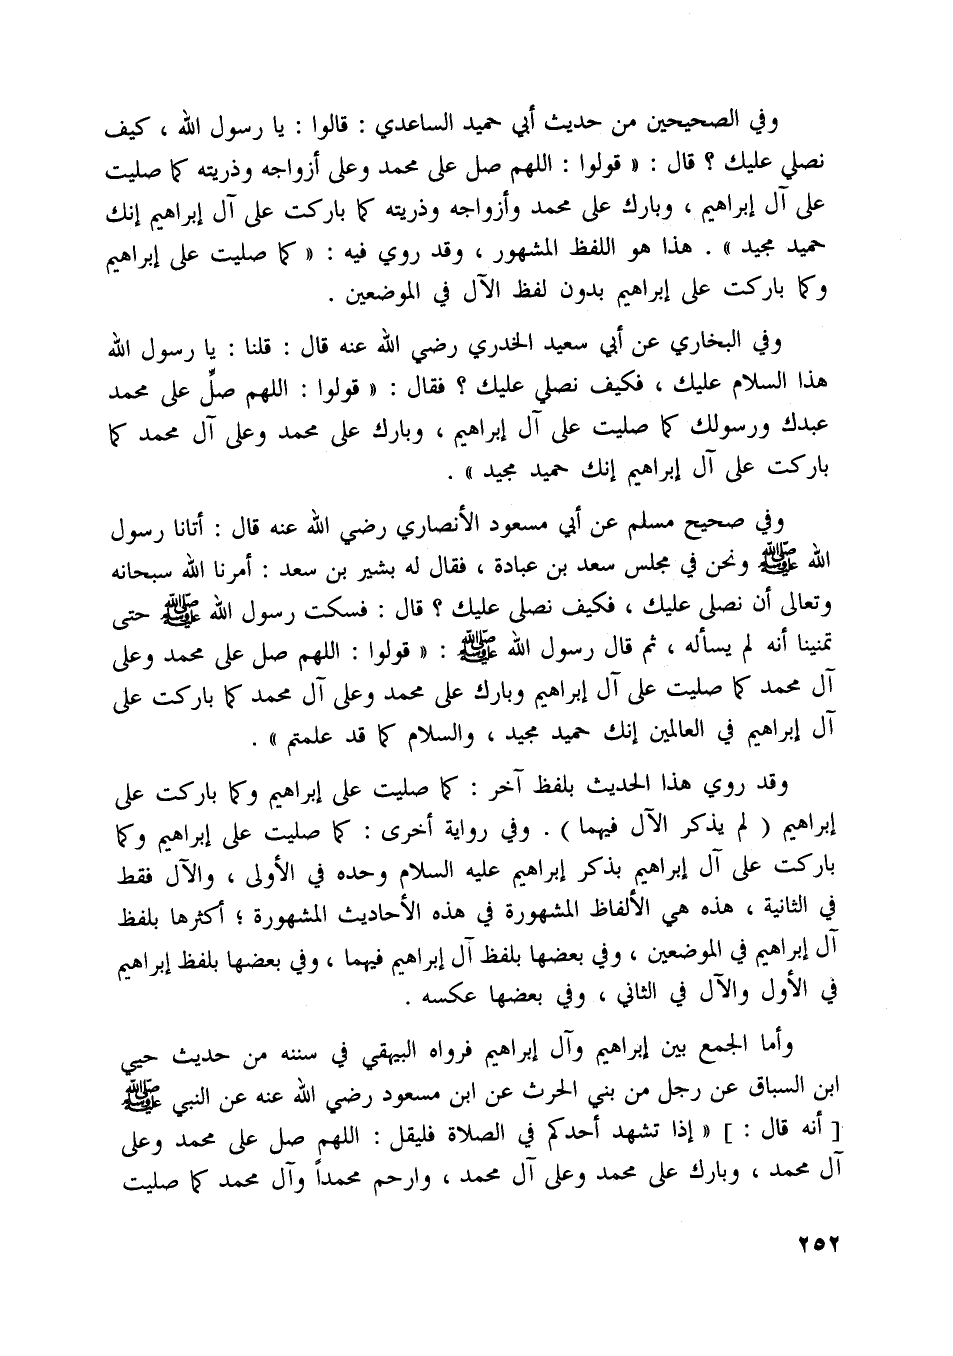 وفي الصحيحين من حديث أبي حميد الساعدي : قالوا : يا رسول الله ، كيف
نصلي عليك ؟ قال : « قولوا : اللهم صل على محمد وعلى أزواجه وذريته كما صليت
على آل إبراهيم ، وبارك على محمد وأزواجه وذريته كما باركت على آل إبراهيم إنك
حميد مجيد » . هذا هو اللفظ المشهور ، وقد روي فيه : « كما صليت على إبراهيم
وكما باركت على إبراهيم بدون لفظ الآل في الموضعين .
وفي البخاري عن أبي سعيد الخدري رضي الله عنه قال : قلنا : يا رسول الله
هذا السلام عليك ، فكيف نصلي عليك ؟ فقال : « قولوا : اللهم صلِّ على محمد
عبدك ورسولك كما صليت على آل إبراهيم ، وبارك على محمد وعلى آل محمد كما
باركت على آل إبراهيم إنك حميد مجيد » .
وفي صحيح مسلم عن أبي مسعود الأنصاري رضي الله عنه قال : أتانا رسول
الله ﷺ ونحن في مجلس سعد بن عبادة ، فقال له بشير بن سعد : أمرنا الله سبحانه
وتعالى أن نصلي عليك ، فكيف نصلي عليك ؟ قال : فسكت رسول الله ﷺ حتى
تمنينا أنه لم يسأله ، ثم قال رسول الله ﷺ : « قولوا : اللهم صل على محمد وعلى
آل محمد كما صليت على آل إبراهيم وبارك على محمد وعلى آل محمد كما باركت على
آل إبراهيم في العالمين إنك حميد مجيد ، والسلام كما قد علمتم » .
وقد روي هذا الحديث بلفظ آخر : كما صليت على إبراهيم وكما باركت على
إبراهيم ( لم يذكر الآل فيهما ) . وفي رواية أخرى : كما صليت على إبراهيم وكما
باركت على آل إبراهيم بذكر إبراهيم عليه السلام وحده في الأولى ، والآل فقط
في الثانية ، هذه هي الألفاظ المشهورة في هذه الأحاديث المشهورة ؛ أكثرها بلفظ
آل إبراهيم في الموضعين ، وفي بعضها بلفظ آل إبراهيم فيهما ، وفي بعضها بلفظ إبراهيم
في الأول والآل في الثاني ، وفي بعضها عكسه .
وأما الجمع بين إبراهيم وآل إبراهيم فرواه البيهقي في سننه من حديث حيي
ابن السباق عن رجل من بني الحرث عن ابن مسعود رضي الله عنه عن النبي ﷺ
[ أنه قال : ] « إذا تشهد أحدكم في الصلاة فليقل : اللهم صل على محمد وعلى
آل محمد ، وبارك على محمد وعلى آل محمد ، وارحم محمداً وآل محمد كما صليت
٢٥٢